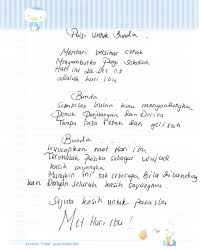 Puisi untuk Bunda
Mentari bersinar cerah
Menyambutku pagi sekolah
Hari ini
adalah hari ibu
Bunda
Sembilan bulan kau mengandungku
Penuh Perjuangan dan Derita
Tanpa rasa Resah dan gelisah
Bunda
Kuucapkan met Hari Ibu
Terimalah Puisiku sebagai wujud
kasih sayangku
Mungkin ini tak seberapa Bila dibanding
kan Dengan seluruh kasih sayangmu
kasih untuk para ibu
Met Hari Ibu !